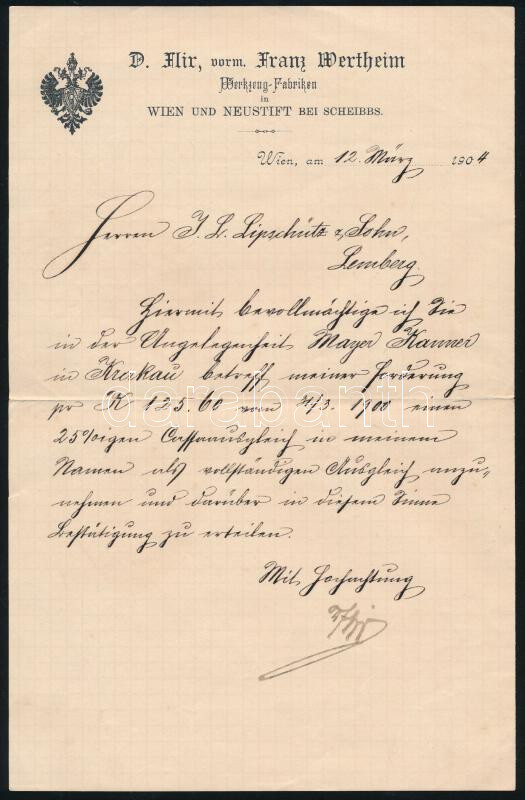 D. Flir, vorm. Franz Wertheim
Werkzeug-Fabriken
in
WIEN UND NEUSTIFT BEI SCHEIBBS.
Wien, am 12. März 1904
Herren J. L. Lipschütz & Sohn,
Lemberg.
Hiermit bevollmächtige ich Sie
in der Angelegenheit Mayer Kanner
in Krakau betreff meiner Forderung
pr K 125.60 vom 31/3. 1900 einen
25%igen Cassaausgleich in meinem
Namen als vollständigen Ausgleich anzu-
nehmen und darüber in diesem Sinne
Bestätigung zu erteilen.
Mit Hochachtung
Flir
darabanth